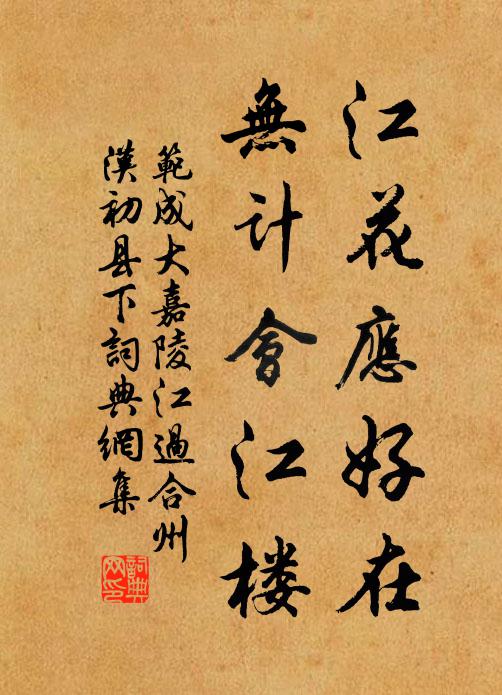 江花應好在
無計會江楼
範成大嘉陵江過合州
漢初县下詞典網集
詞典网印